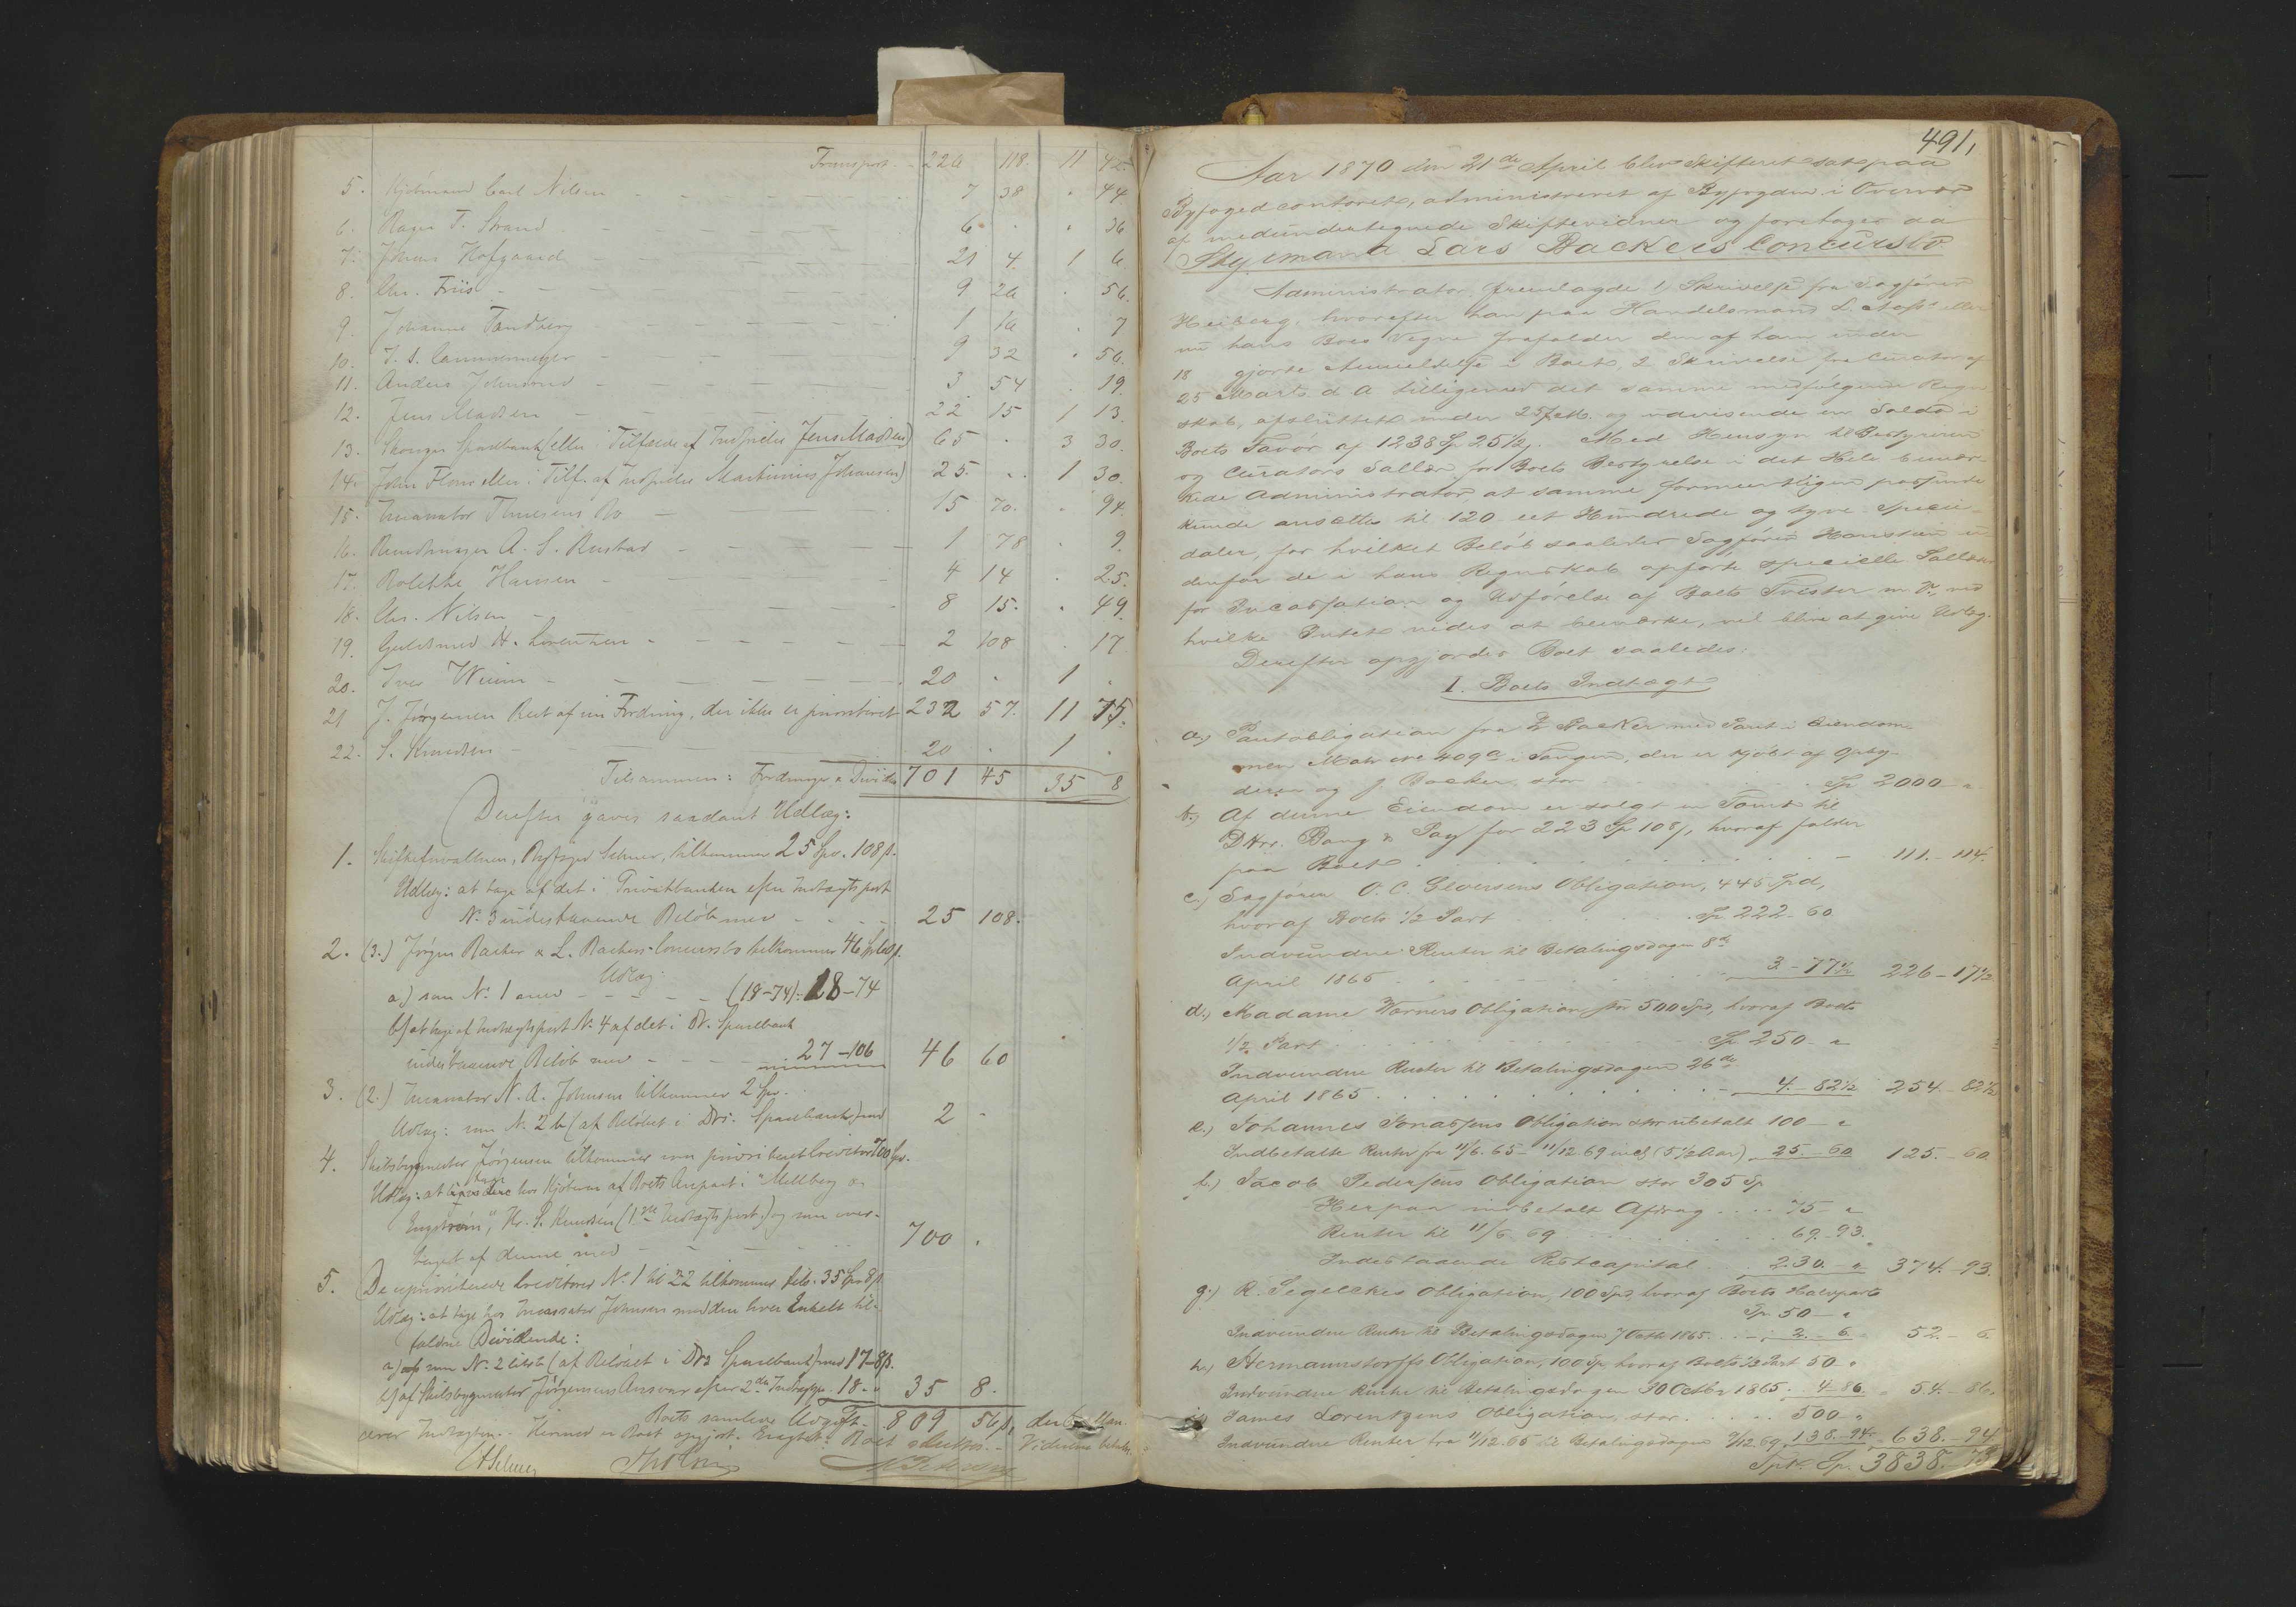 Transport - 226 118. 11 42
5. Kjøbmand Carl Nilsen 7 38 . 44
6. Ragn. T. Strand 6 . . 36
7. Johans Hofgaard 21 4. 1 6.
8. Chr. Friis 9 26 . 56.
9. Johanne Tandberg 1 16 . 7
10. J. S. Cammermeyer 9 32 . 56.
11. Anders Johnsrud 3 54 . 19.
12. Jens Madsen 22 15 1 13.
13. Skoger Sparebank (eller i Tilfælde af Indfrielse Jens Madsen) 65 . 3 30.
14. John Floer eller i Tilf. af Indfrielse Martinius Johansen) 25. . 1 30.
15. Incassator Thuesens Bo 15 70. . 94.
16. Bundtmager A. S. Rustad 1 78 . 9.
17. Bolette Hansen 4 14 . 25.
18. Chr. Nilsen 8 15. . 49.
19. Guldsmed H. Lorentzen 2 108 . 17
20. Iver Weum 20 . 1 .
21 J. Jørgensen Rest af sin Fordring, der ikke er prioriteret 232 57. 11 75.
22. S. Knudsen 20 . 1 .
Tilsammen: Fordringer & Divid. 701 45 35 8
Derefter gaves saadant Udlæg:
1. Skifteforvalteren, Byfoged Scheer, tilkommer 25 Spd. 108 ß.
Udlæg: at tage af det i Privatbanken efter Indtægtspost
No. 3 indestaaende Beløb med 25 108.
2. (3.) Jørgen Backer & L. Backers Concursbo tilkommer 46 Spd 60 ß.
Udlæg:
a.) som No. 1 med (18-74) 18-74
b) at tage af Indtægtspost No. 4 af det i Dr. Sparebank
indestaaende Beløb med 27-106 46 60
3. (2.) Incassator N. A. Johnsen tilkommer 2 Spd.
Udlæg: som No. 2 b (af Beløbet i Drs. Sparebank) med 2 -
4. Skibsbygmester Jørgensen tilkommer som prioriteret Creditor 700 Spd.
Udlæg: at tage hos Kjøberen af Boets Anpart i "Mellberg &
Engstrøm", Hr. S. Knudsen (1ste Indtægtspost) og som over-
taget af denne med 700 .
5. De uprioriterede Creditorer No. 1 til 22 tilkommer tils. 35 Spd 8 ß
Udlæg: at tage hos Incassator Johnsen med den hver Enkelt til-
faldne Dividende:
a) som No. 2 litr b (af Beløbet i Drs Sparebank) med 17-8 ß.
b) af Skibsbygmester Jørgensens Ansvar efter 2den Indtægtsp. 18. - 35 8.
Boets samlede Udgift 809 56 ß,
over Indtægten. - Hermed er Boet opgjort. Boet sluttet. -
491,
Aar 1870 den 21de April blev Skifteret sat paa
Byfogedcontoret, administreret af Byfogden i Overvær
af medundertegnede Skiftevidner og foretages da
Styrmand Lars Backers Concursbo.
Administrator fremlagde 1, Skrivelse fra Sagfører
Heiberg, hvorefter han paa Handelsmand L. eller
nu hans Boes Vegne frafalder den af ham under
18 gjorte Anmeldelse i Boet, 2 Skrivelse fra Curator af
25 Marts d A tilligemed det samme medfølgende Regn-
skab, afsluttet under 25 og udvisende en Saldo i
Boets Favør af 1238 Sp 25 1/2 ß. Med Hensyn til Bestyrerens
og Curators Sallær for Boets Bestyrelse i det Hele bemær-
kede Administrator, at samme formeentligen passende
kunde ansættes til 120 - eet Hundrede og tyve Specie-
daler, for hvilket Beløb saaledes Sagfører Hansteen
derfor de i hans Regnskab opførte specielle Sallærer
for Incassation og Udførelse af Boets Tvister m. V. ved
hvilke Intet vides at bemærke, vil blive at give Udlæg.
Derefter opgjordes Boet saaledes:
I. Boets Indtægt
a.) Pantobligation fra P. Backer med Pant i Eiendom-
men Matr. No 409a i Tangen, der er kjøbt af
deren og J. Backer, stor Sp 2000 - "
b.) Af denne Eiendom er solgt en Tomt til
DHrr. Bang & Pay for 223 Sp 108 ß, hvoraf falder
paa Boet 111. - 114.
c.) Sagfører O. C. Eloersens Obligation, 445 Spd,
hvoraf Boets 1/2 Part Sp 222 - 60.
Indvundne Renter til Betalingsdagen 8de
April 1865 3 - 77 1/2 226 - 17 1/2
d.) Madame Værners Obligation for 500 Spd, hvoraf Boets
1/2 Part Sp 250 - "
Indvundne Renter til Betalingsdagen 26de
April 1865 4. - 82 1/2 254 - 82 1/2
e.) Johannes Jonassens Obligation stor ubetalt 100 - "
Indbetalte Renter fra 11/6. 65 - 11/12 69 incl (5 1/2 Aar) 25 - 60 125. - 60
f.) Jacob Pedersens Obligation stor 305 Sp
Herpaa indbetalt Afdrag 75 - "
Renter til 11/6 69 69. 93.
Indestaaende Restcapital 230. - " 374. - 93.
g.) R. Segelckes Obligation, 100 Spd, hvoraf Boets Halvpart
Sp 50 - "
Indvundne Renter til Betalingsdagen 7 Octb 1865 2. - 6. 52. - 6.
h.) Hermannstorffs Obligation, 100 Sp, hvoraf Boets 1/2 Part 50 - "
Indvundne Renter til Betalingsdagen 30 Octbr 1865 4 - 86. 54. - 86.
i.) James Lorentzens Obligation, stor 500 - "
Indvundne Renter fra 11/12. 65 til Betalingsdagen 9/12 69 138. - 94. 638. - 94
Tpt. Sp. 3838. - 73